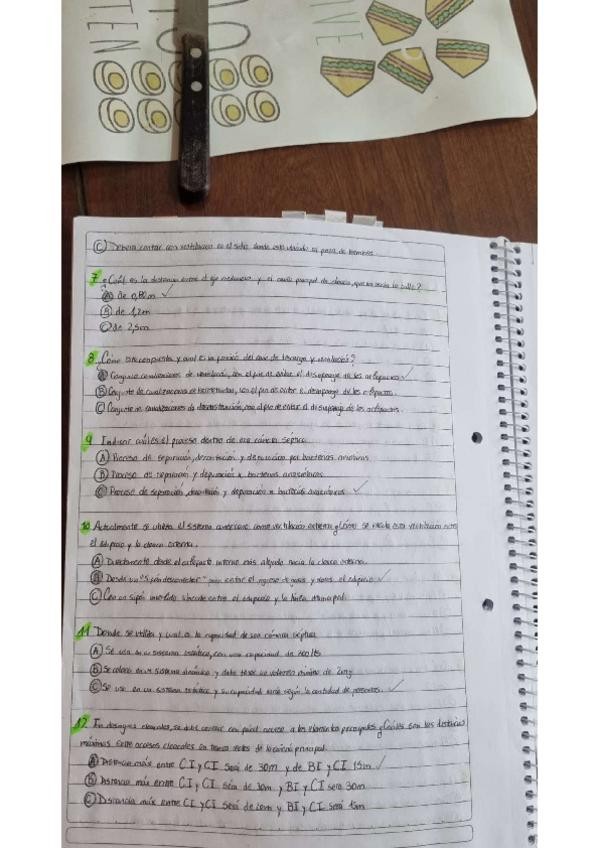 TEN
IVE
C) Debera contar con ventilacion en el sitio donde esta ubicado
7 ¿Cuál es la distancia entre el eje y el caño principal de cloaca, que va hacia la calle?
A) de 0,80m ✓
B) de 1,2m
C) de 2,5m
8 ¿Cómo y cual es la función del de descarga y ventilación?
A) Conjunto canalizaciones de ventilación, con el fin de evitar el desifonaje de los artefactos ✓
B) Conjunto de canalizaciones con el fin de evitar el desifonaje de los artefactos.
C) Conjunto de canalizaciones de con el fin de evitar el desifonaje de los artefactos.
9 Indicar cuál es el proceso dentro de una cámara séptica
A) Proceso de separación, decantación y depuración por bacterias
B) Proceso de separación y depuración x bacterias anaeróbicas
C) Proceso de separación, decantación y depuración x bacterias anaeróbicas ✓
10 Actualmente se utiliza el sistema americano como ventilación externa ¿Cómo se esta ventilación entre
el edificio y la cloaca externa.
A) Directamente desde el artefacto interno más alejado hacia la cloaca externa.
B) Desde un "Sifón desconector" para evitar el ingreso de gases y al edificio ✓
C) Con un sifón invertido entre el edificio y la línea municipal
11 Donde se utiliza y cual es la capacidad de una cámara séptica
A) Se usa en un sistema estático, con una capacidad de lts
B) Se coloca en un sistema dinámico y debe tener un volumen mínimo de
C) Se usa en un sistema estático y su capacidad varía según la cantidad de personas. ✓
12 En desagues cloacales, se debe contar con fácil acceso a los elementos principales ¿Cuáles son las distancias
máximas entre accesos cloacales en tramos rectos de la cañería principal.
A) Distancia máx entre CI y CI será de 30m y de BI y CI 15m ✓
B) Distancia máx entre CI y CI será de 10m y BI y CI será 30m
C) Distancia máx entre CI y CI será de 20m y BI y CI será 5m